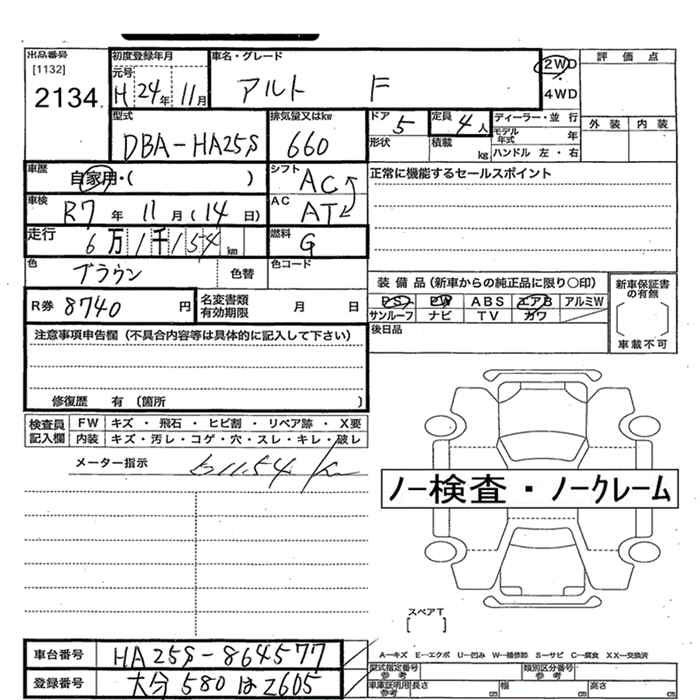 出品番号
[1132]
2134
初度登録年月
元号
H 24年 11月
車名・グレード
アルト F
2WD
4WD
評価点
外装 内装
型式
DBA-HA25S
排気量又はkw
660
ドア 5
定員 4人
ディーラー・並行
モデル年式 年
形状
積載 kg
ハンドル 左・右
車歴
自家用・( )
シフト AC
AC AT
正常に機能するセールスポイント
車検 R7年 11月(14日)
走行 6万1千154km
燃料 G
色 ブラウン 色替
色コード
装備品(新車からの純正品に限り○印)
PS PW ABS エアB アルミW
サンルーフ ナビ TV カワ
新車保証書の有無
車載不可
R券 8740円
名変書類有効期限 月 日
後日品
注意事項申告欄(不具合内容等は具体的に記入して下さい)
修復歴 有(箇所 )
検査員記入欄
FW キズ・飛石・ヒビ割・リペア跡・X要
内装 キズ・汚レ・コゲ・穴・スレ・キレ・破レ
メーター指示 61154Km
ノー検査・ノークレーム
スペアT
[ ]
A-キズ E-エクボ U-凹み W-補修跡 S-サビ C-腐食 XX-交換済
車台番号 HA25S-864577
登録番号 大分 580 は 2605
型式指定番号 参考
類別区分番号 参考
車庫証明用 参考 長さ cm 幅 cm 高さ cm